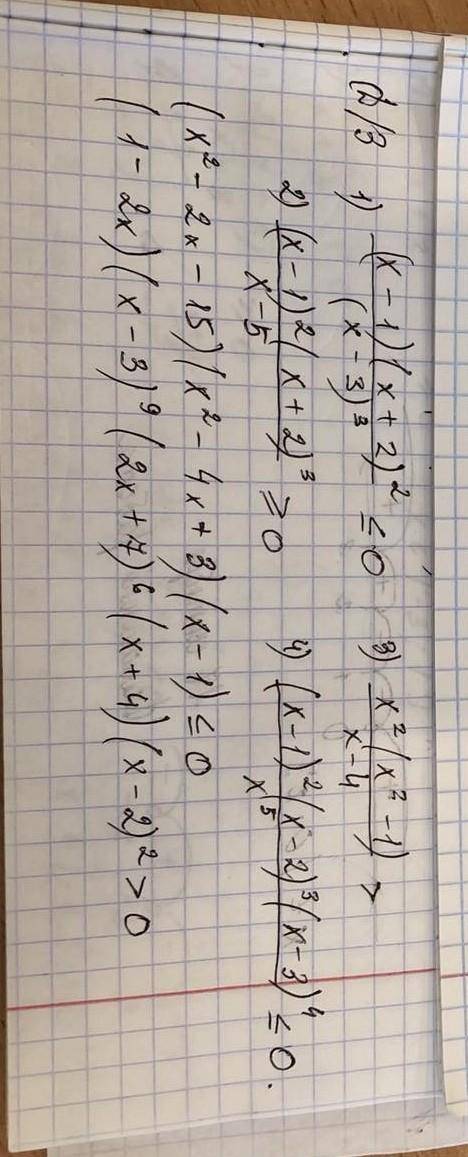 Д/З 1) (x - 1)(x + 2)² / (x - 3)³ ≤ 0 3) x²(x² - 1) / x - 4 >
2) (x - 1)²(x + 2)³ / x - 5 ≥ 0 4) (x - 1)²(x - 2)³(x - 3)⁴ / x⁵ ≤ 0.
(x² - 2x - 15)(x² - 4x + 3)(x - 1) ≤ 0
(1 - 2x)(x - 3)⁹(2x + 7)⁶(x + 4)(x - 2)² > 0